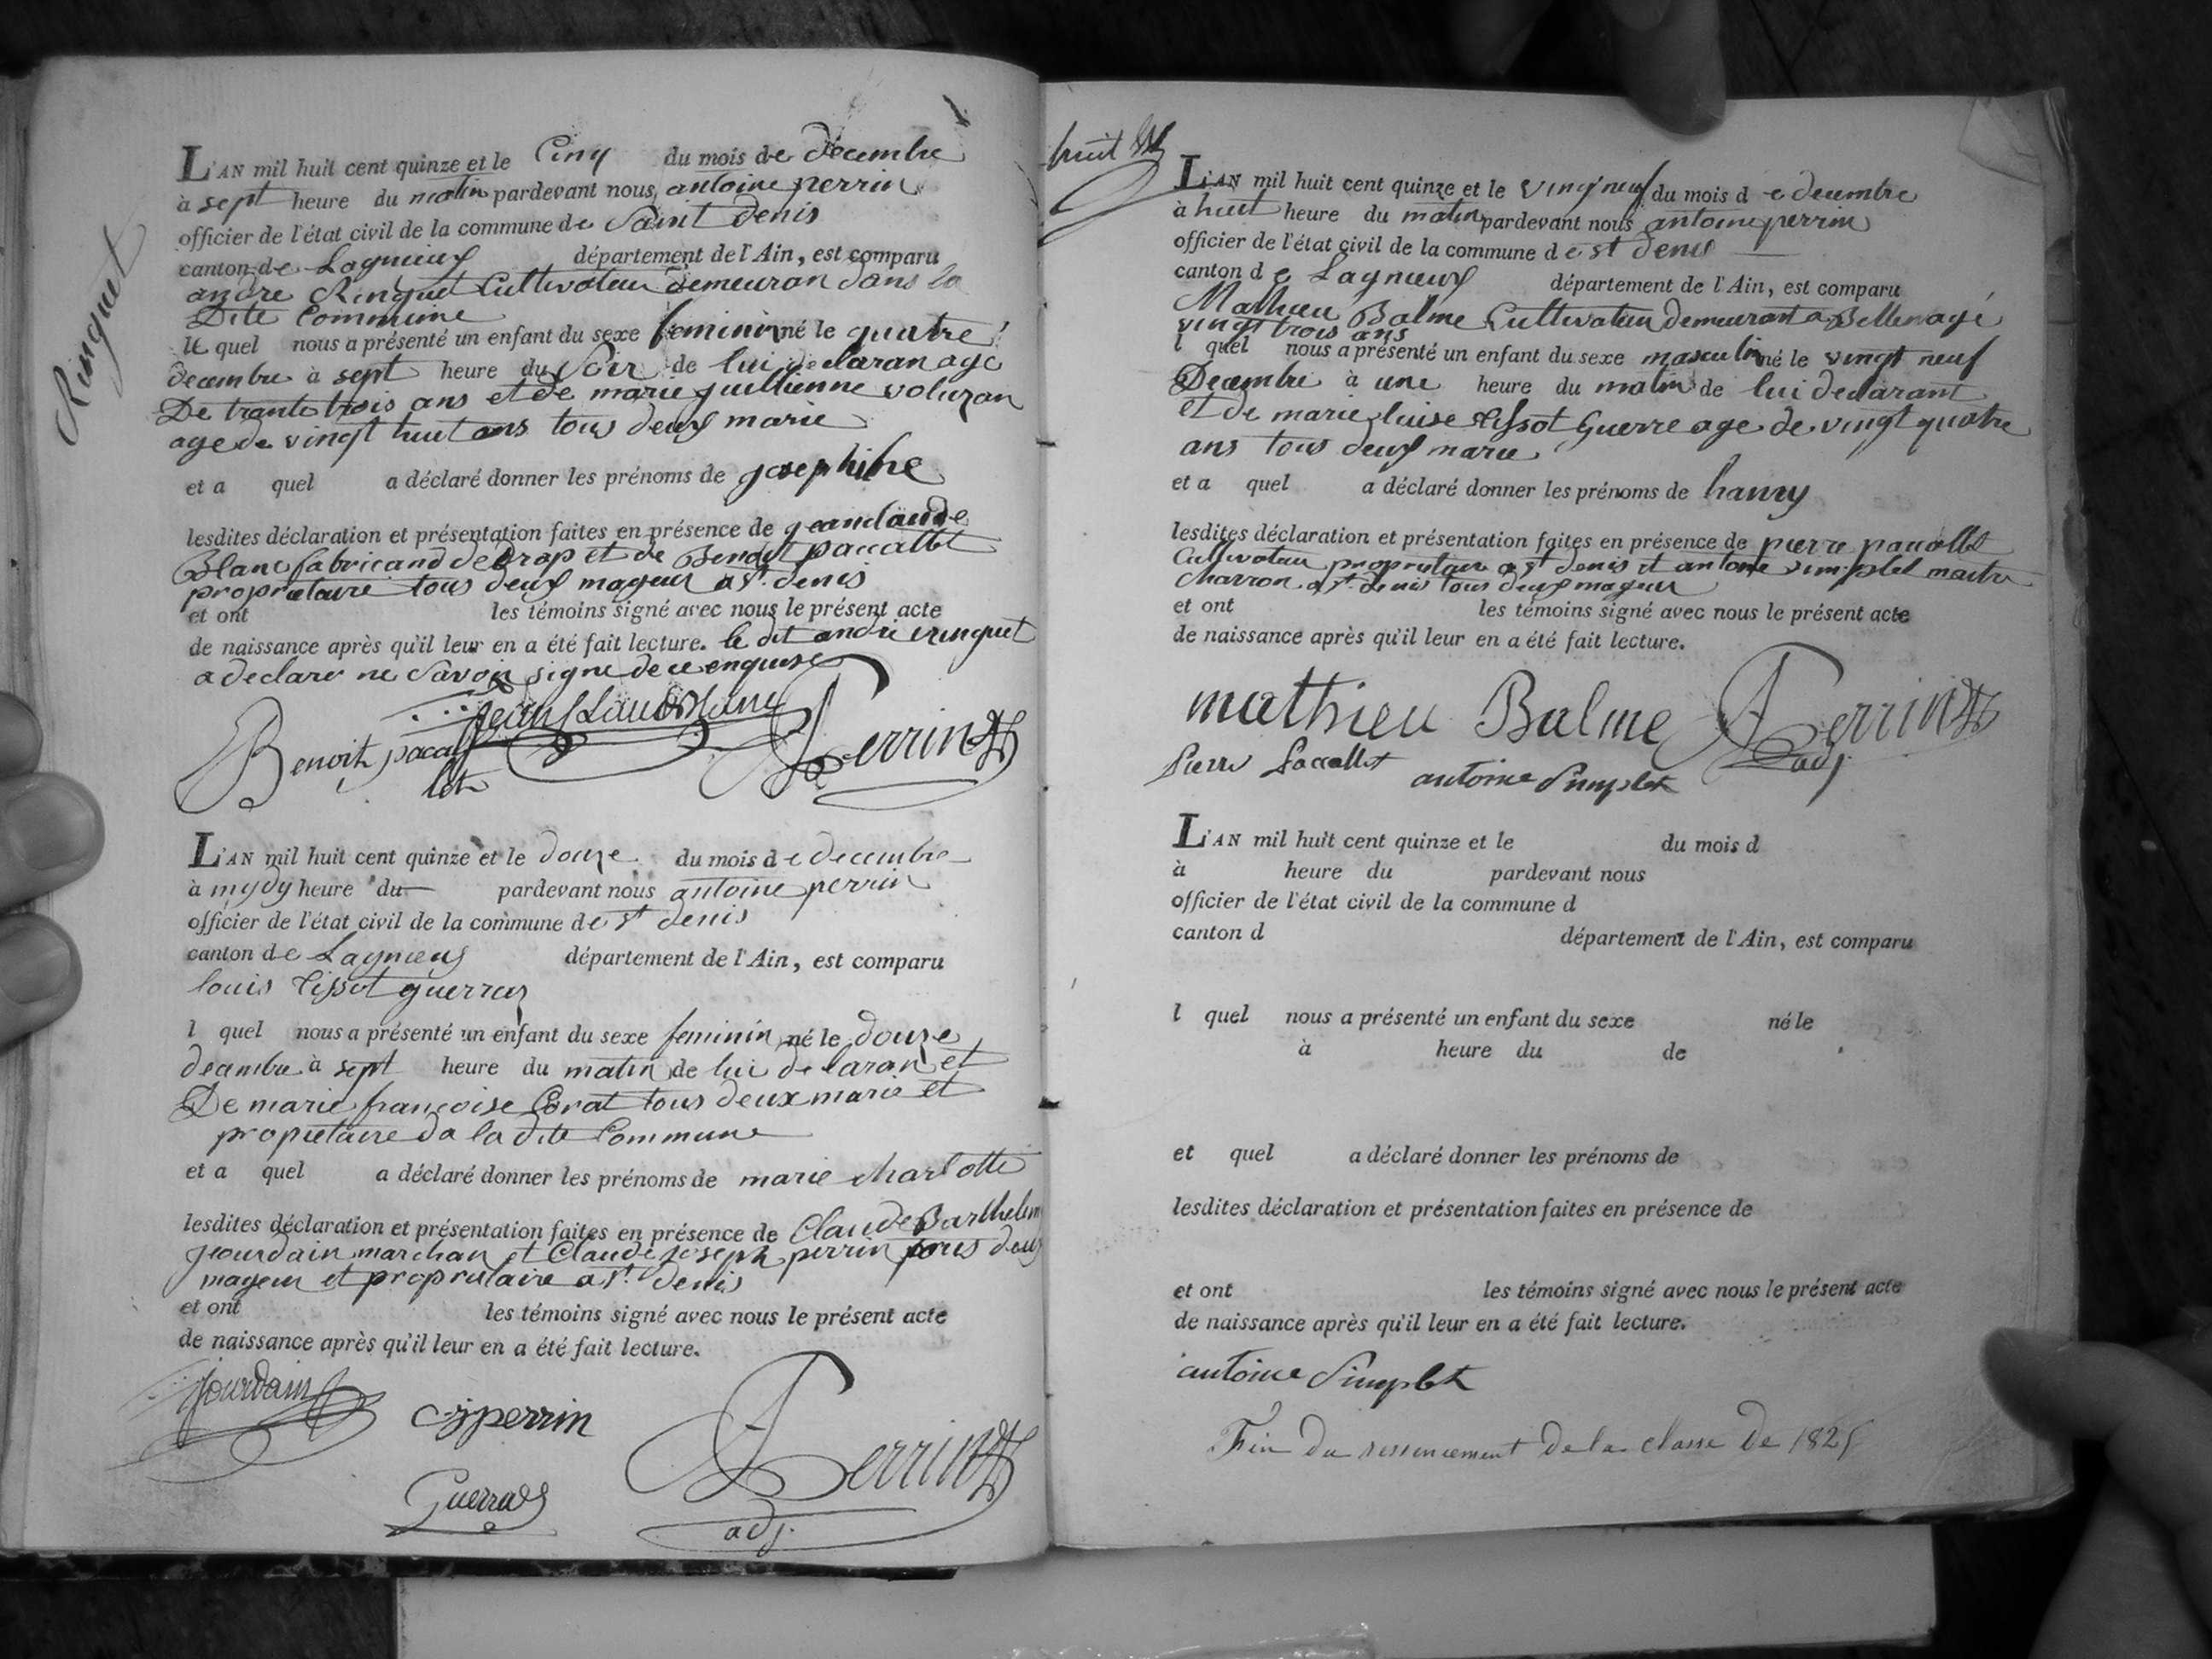 Ringuet
L'AN mil huit cent quinze et le Cinq du mois de decembre
à sept heure du matin pardevant nous antoine perrin
officier de l'état civil de la commune de Saint denis
canton de Lagnieux département de l'Ain, est comparu
andre Ringuet Cultivateur Demeuran dans la
Dite Commune
le quel nous a présenté un enfant du sexe feminin né le quatre
decembre à sept heure du Soir de lui declaran age
De trante trois ans et de marie juillienne voluzan
age de vingt huit ans tous deux marie
et a quel a déclaré donner les prénoms de josephine
lesdites déclaration et présentation faites en présence de jeanclaude
Blanc fabricand de Drap et de Benoit paccallet
proprietaire tous deux mageur a St. denis
et ont les témoins signé avec nous le présent acte
de naissance après qu'il leur en a été fait lecture. le dit andre ringuet
a declare ne Savoir signe de ce enquise
Jean Claude Blanc
Benoit pacal
let
Perrin
L'AN mil huit cent quinze et le douze du mois de decembre
à mydy heure du pardevant nous antoine perrin
officier de l'état civil de la commune de St denis
canton de Lagnieux département de l'Ain, est comparu
louis tissot guerraz
l quel nous a présenté un enfant du sexe feminin né le douze
decembre à sept heure du matin de lui declaran et
De marie francoise Corat tous deux marie et
proprietaire da la dite Commune
et a quel a déclaré donner les prénoms de marie charlotte
lesdites déclaration et présentation faites en présence de Claude Barthelemy
jourdain marchan et Claude joseph perrin tous deux
mageur et proprietaire a St. denis
et ont les témoins signé avec nous le présent acte
de naissance après qu'il leur en a été fait lecture.
jourdain
cj perrin
Perrin
Guerraz
adj.
huit
L'AN mil huit cent quinze et le vingneuf du mois de decembre
à huit heure du matin pardevant nous antoine perrin
officier de l'état civil de la commune de st denis
canton de Lagnieux département de l'Ain, est comparu
Mathieu Balme Cultivateur demeurant a Bellenagé
vingt trois ans
l quel nous a présenté un enfant du sexe masculin né le vingt neuf
Decembre à une heure du matin de lui declarant
et de marie luise tissot Guerre age de vingt quatre
ans tous deux marie
et a quel a déclaré donner les prénoms de hanry
lesdites déclaration et présentation faites en présence de pierre pacallet
Cultivateur proprietaire a st denis et antoine simplet maitre
charron a st. denis tous deux mageur
et ont les témoins signé avec nous le présent acte
de naissance après qu'il leur en a été fait lecture.
mathieu Balme
Perrin
adj.
Pierre Paccallet
antoine Simplet
L'AN mil huit cent quinze et le du mois d
à heure du pardevant nous
officier de l'état civil de la commune d
canton d département de l'Ain, est comparu
l quel nous a présenté un enfant du sexe né le
à heure du de
et quel a déclaré donner les prénoms de
lesdites déclaration et présentation faites en présence de
et ont les témoins signé avec nous le présent acte
de naissance après qu'il leur en a été fait lecture.
antoine Simplet
Fin du ressencement de la classe de 1825